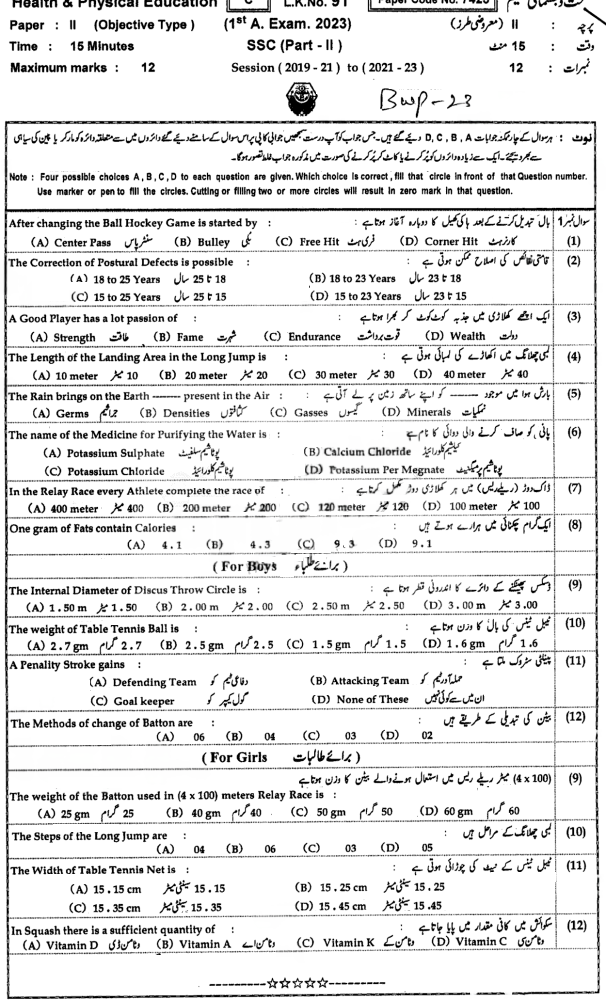 Health & Physical Education C L.K.No. 91 Paper Code No. 7425
Paper : II (Objective Type ) (1st A. Exam. 2023) پرچہ : II (معروضی طرز)
Time : 15 Minutes SSC (Part - II ) وقت : 15 منٹ
Maximum marks : 12 Session (2019 - 21) to (2021 - 23) نمبرات : 12
BWP-23
نوٹ : ہر سوال کے چار ممکنہ جوابات D, C, B, A دیئے گئے ہیں۔ جس جواب کو آپ درست سمجھیں جوابی کاپی پر اس سوال کے سامنے دیئے گئے دائروں میں سے متعلقہ دائرہ کو مارکر یا پین کی سیاہی
سے بھر دیجئے۔ ایک سے زیادہ دائروں کو پُر کرنے یا کاٹ کر پُر کرنے کی صورت میں مذکورہ جواب غلط تصور ہو گا۔
Note : Four possible choices A , B , C , D to each question are given. Which choice is correct , fill that circle in front of that Question number.
Use marker or pen to fill the circles. Cutting or filling two or more circles will result in zero mark in that question.
After changing the Ball Hockey Game is started by : بال تبدیل کرنے کے بعد ہاکی کھیل کا دوبارہ آغاز ہوتا ہے : سوال نمبر 1
(A) Center Pass سنٹر پاس (B) Bulley بلی (C) Free Hit فری ہٹ (D) Corner Hit کارنر ہٹ (1)
The Correction of Postural Defects is possible : قامتی نقائص کی اصلاح ممکن ہوتی ہے : (2)
(A) 18 to 25 Years 18 تا 25 سال (B) 18 to 23 Years 18 تا 23 سال
(C) 15 to 25 Years 15 تا 25 سال (D) 15 to 23 Years 15 تا 23 سال
A Good Player has a lot passion of : ایک اچھے کھلاڑی میں جذبہ کوٹ کوٹ کر بھرا ہوتا ہے : (3)
(A) Strength طاقت (B) Fame شہرت (C) Endurance قوت برداشت (D) Wealth دولت
The Length of the Landing Area in the Long Jump is : لمبی چھلانگ میں اکھاڑے کی لمبائی ہوتی ہے : (4)
(A) 10 meter 10 میٹر (B) 20 meter 20 میٹر (C) 30 meter 30 میٹر (D) 40 meter 40 میٹر
The Rain brings on the Earth -------- present in the Air : بارش ہوا میں موجود -------- کو اپنے ساتھ زمین پر لے آتی ہے : (5)
(A) Germs جراثیم (B) Densities کثافتوں (C) Gasses گیسوں (D) Minerals نمکیات
The name of the Medicine for Purifying the Water is : پانی کو صاف کرنے والی دوائی کا نام ہے : (6)
(A) Potassium Sulphate پوٹاشیم سلفیٹ (B) Calcium Chloride کیلشیم کلورائیڈ
(C) Potassium Chloride پوٹاشیم کلورائیڈ (D) Potassium Per Megnate پوٹاشیم پرمیگنیٹ
In the Relay Race every Athlete complete the race of : ڈاک دوڑ (ریلے ریس) میں ہر کھلاڑی دوڑ مکمل کرتا ہے : (7)
(A) 400 meter 400 میٹر (B) 200 meter 200 میٹر (C) 120 meter 120 میٹر (D) 100 meter 100 میٹر
One gram of Fats contain Calories : ایک گرام چکنائی میں حرارے ہوتے ہیں : (8)
(A) 4.1 (B) 4.3 (C) 9.3 (D) 9.1
( For Boys برائے طلباء )
The Internal Diameter of Discus Throw Circle is : ڈسکس پھینکنے کے دائرے کا اندرونی قطر ہوتا ہے : (9)
(A) 1.50 m 1.50 میٹر (B) 2.00 m 2.00 میٹر (C) 2.50 m 2.50 میٹر (D) 3.00 m 3.00 میٹر
The weight of Table Tennis Ball is : ٹیبل ٹینس کی بال کا وزن ہوتا ہے : (10)
(A) 2.7 gm 2.7 گرام (B) 2.5 gm 2.5 گرام (C) 1.5 gm 1.5 گرام (D) 1.6 gm 1.6 گرام
A Penality Stroke gains : پینلٹی سٹروک ملتا ہے : (11)
(A) Defending Team دفاعی ٹیم کو (B) Attacking Team حملہ آور ٹیم کو
(C) Goal keeper گول کیپر کو (D) None of These ان میں سے کوئی نہیں
The Methods of change of Batton are : بیٹن کی تبدیلی کے طریقے ہیں : (12)
(A) 06 (B) 04 (C) 03 (D) 02
( For Girls برائے طالبات )
(4 x 100) میٹر ریلے ریس میں استعمال ہونے والے بیٹن کا وزن ہوتا ہے (9)
The weight of the Batton used in (4 x 100) meters Relay Race is :
(A) 25 gm 25 گرام (B) 40 gm 40 گرام (C) 50 gm 50 گرام (D) 60 gm 60 گرام
The Steps of the Long Jump are : لمبی چھلانگ کے مراحل ہیں : (10)
(A) 04 (B) 06 (C) 03 (D) 05
The Width of Table Tennis Net is : ٹیبل ٹینس کے نیٹ کی چوڑائی ہوتی ہے : (11)
(A) 15.15 cm 15.15 سینٹی میٹر (B) 15.25 cm 15.25 سینٹی میٹر
(C) 15.35 cm 15.35 سینٹی میٹر (D) 15.45 cm 15.45 سینٹی میٹر
In Squash there is a sufficient quantity of : سکوائش میں کافی مقدار میں پایا جاتا ہے : (12)
(A) Vitamin D وٹامن ڈی (B) Vitamin A وٹامن اے (C) Vitamin K وٹامن کے (D) Vitamin C وٹامن سی
---------☆☆☆☆☆---------